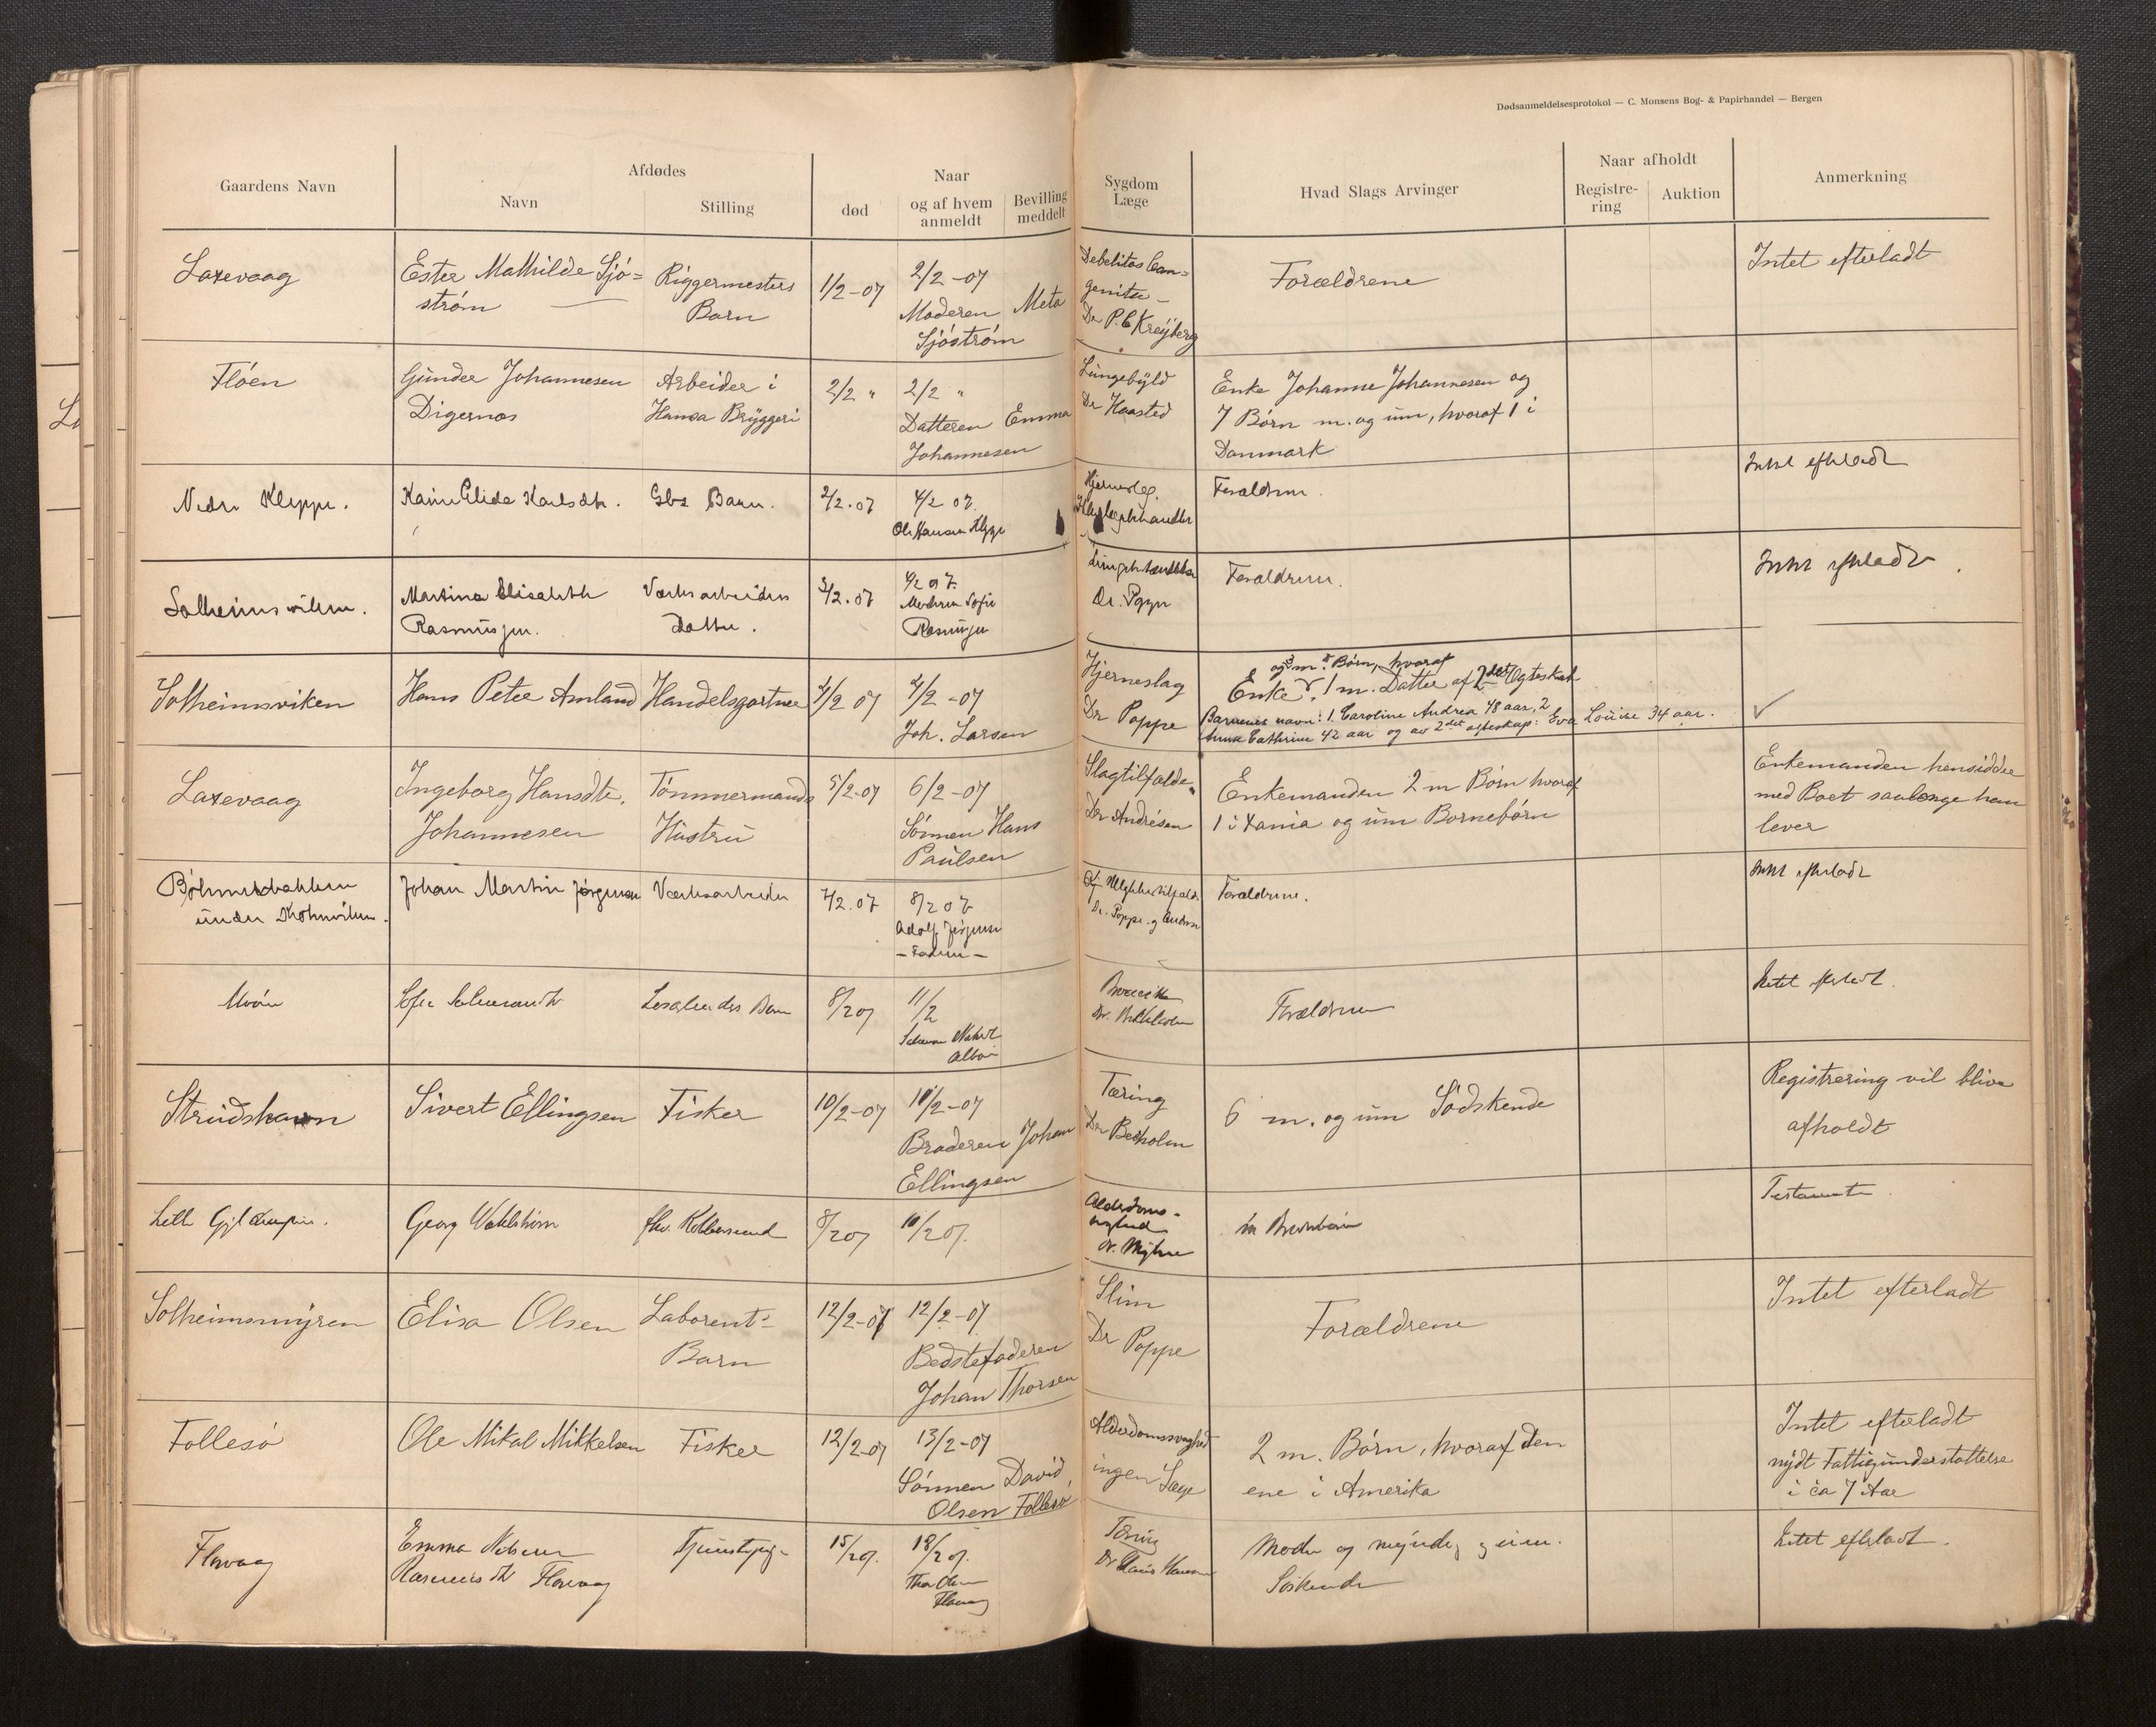 Dødsanmeldelsesprotokol — C. Monsens Bog- & Papirhandel — Bergen
Gaardens Navn
Afdødes
Navn
Stilling
død
Naar
og af hvem
anmeldt
Bevilling
meddelt
Sygdom
Læge
Hvad Slags Arvinger
Naar afholdt
Registre-
ring
Auktion
Anmerkning
Laxevaag
Ester Mathilde Sjö=
ström
Riggermesters
Barn
1/2-07
2/2-07
Moderen Meta
Sjöström
Debelitas Con=
genita
Dr P. C Kreyberg
Forældrene
Intet efterladt
Flöen
Gunder Johannesen
Digernes
Arbeider i
Hansa Bryggeri
2/2 "
2/2 "
Datteren Emma
Johannesen
Lungebyld
Dr Haasted
Enke Johanne Johannesen og
7 Børn m. og um, hvoraf 1 i
Danmark
Nedre Kleppe.
Karlsdtr.
Gbr Barn.
2/2.07
4/2 07
Ole Hansen Kleppe
Forældrene.
Intet efterladt
Solheimsviken.
Martina Elisabeth
Rasmussen.
Værksarbeiders
Datter.
3/2.07
4/2 07.
Moderen Sofie
Rasmussen
Lungebetændelse
Forældrene.
Intet efterladt.
Solheimsviken
Hans Peter Amland
Handelsgartner
4/2 07
4/2-07
Joh. Larsen
Hjerneslag
Dr Poppe
og 3 m. Børn, hvoraf
Enke 1 m. Datter af 2det Ægteskab
Barnenes navn: 1. Caroline Andrea 48 aar, 2
Anna Cathrine 42 aar og av 2det ægteskap: Eva Louise 34 aar.
✓
Laxevaag
Ingeborg Hansdtr.
Johannesen
Tömmermands
Hustru
5/2-07
6/2-07
Sönnen Hans
Paulsen
Slagtilfælde
Dr Andrésen
Enkemanden 2 m Børn hvoraf
1 i Xania og um Bornebörn
Enkemanden hensidder
med Boet saalenge han
lever
under
Johan Martin Jørgensen
Værksarbeider
7/2.07
8/2 07
Adolf Jörgensen
- Faderen -
Dr. Poppe og
Forældrene.
Intet efterladt
Sofie
Barn
8/2 07
11/2
Forældrene
Intet efterladt.
Strudshavn
Sivert Ellingsen
Fisker
10/2-07
10/2-07
Broderen Johan
Ellingsen
Tæring
Dr Bexholm
6 m. og um Södskende
Registrering vil blive
afholdt
Georg Wahlström
8/2 07
10/2 07.
Alderdoms-
svaghed
Dr. Myhre
Testamente
Solheimsmyren
Elisa Olsen
Laborent=
Barn
12/2-07
12/2-07
Bedstefaderen
Johan Thorsen
Slim
Dr Poppe
Forældrene
Intet efterladt
Follesö
Ole Mikal Mikkelsen
Fisker
12/2-07
13/2-07
Sönnen David
Olsen Follesö
Alderdomssvaghed
ingen Læge
2 m. Børn, hvoraf den
ene i Amerika
Intet efterladt
nydt Fattigunderstøttelse
i ca 7 Aar
Florvaag
Emma Nelsine
Rasmusdtr Florvaag
Tjenestepige
15/2 07.
18/2 07.
Thor Olsen
Florvaag
Tæring
Dr Claus Hansen
Moder og myndig og um.
Söskende
Intet efterladt.